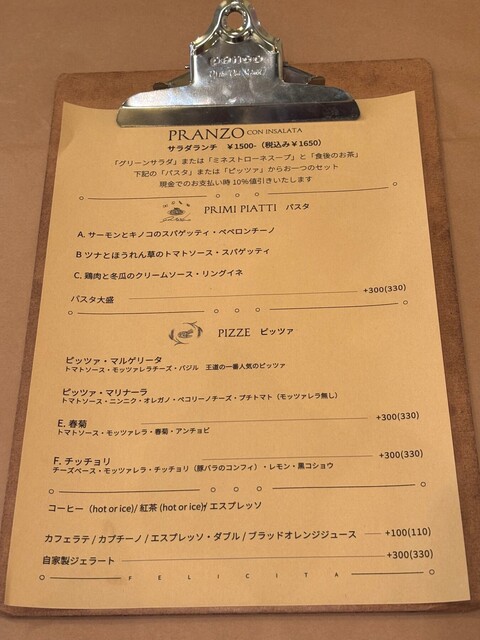 PRANZO CON INSALATA
サラダランチ ￥1500-（税込み￥1650）
「グリーンサラダ」または「ミネストローネスープ」と「食後のお茶」
下記の「パスタ」または「ピッツァ」からお一つのセット
現金でのお支払い時 10%値引きいたします
PRIMI PIATTI パスタ
A. サーモンとキノコのスパゲッティ・ペペロンチーノ
B ツナとほうれん草のトマトソース・スパゲッティ
C. 鶏肉と冬瓜のクリームソース・リングイネ
パスタ大盛 +300(330)
PIZZE ピッツァ
ピッツァ・マルゲリータ
トマトソース・モッツァレラチーズ・バジル 王道の一番人気のピッツァ
ピッツァ・マリナーラ
トマトソース・ニンニク・オレガノ・ペコリーノチーズ・プチトマト（モッツァレラ無し）
E. 春菊 +300(330)
トマトソース・モッツァレラ・春菊・アンチョビ
F. チッチョリ +300(330)
チーズベース・モッツァレラ・チッチョリ（豚バラのコンフィ）・レモン・黒コショウ
コーヒー（hot or ice)/ 紅茶 (hot or ice)/ エスプレッソ
カフェラテ / カプチーノ / エスプレッソ・ダブル / ブラッドオレンジジュース +100(110)
自家製ジェラート +300(330)
FELICITA